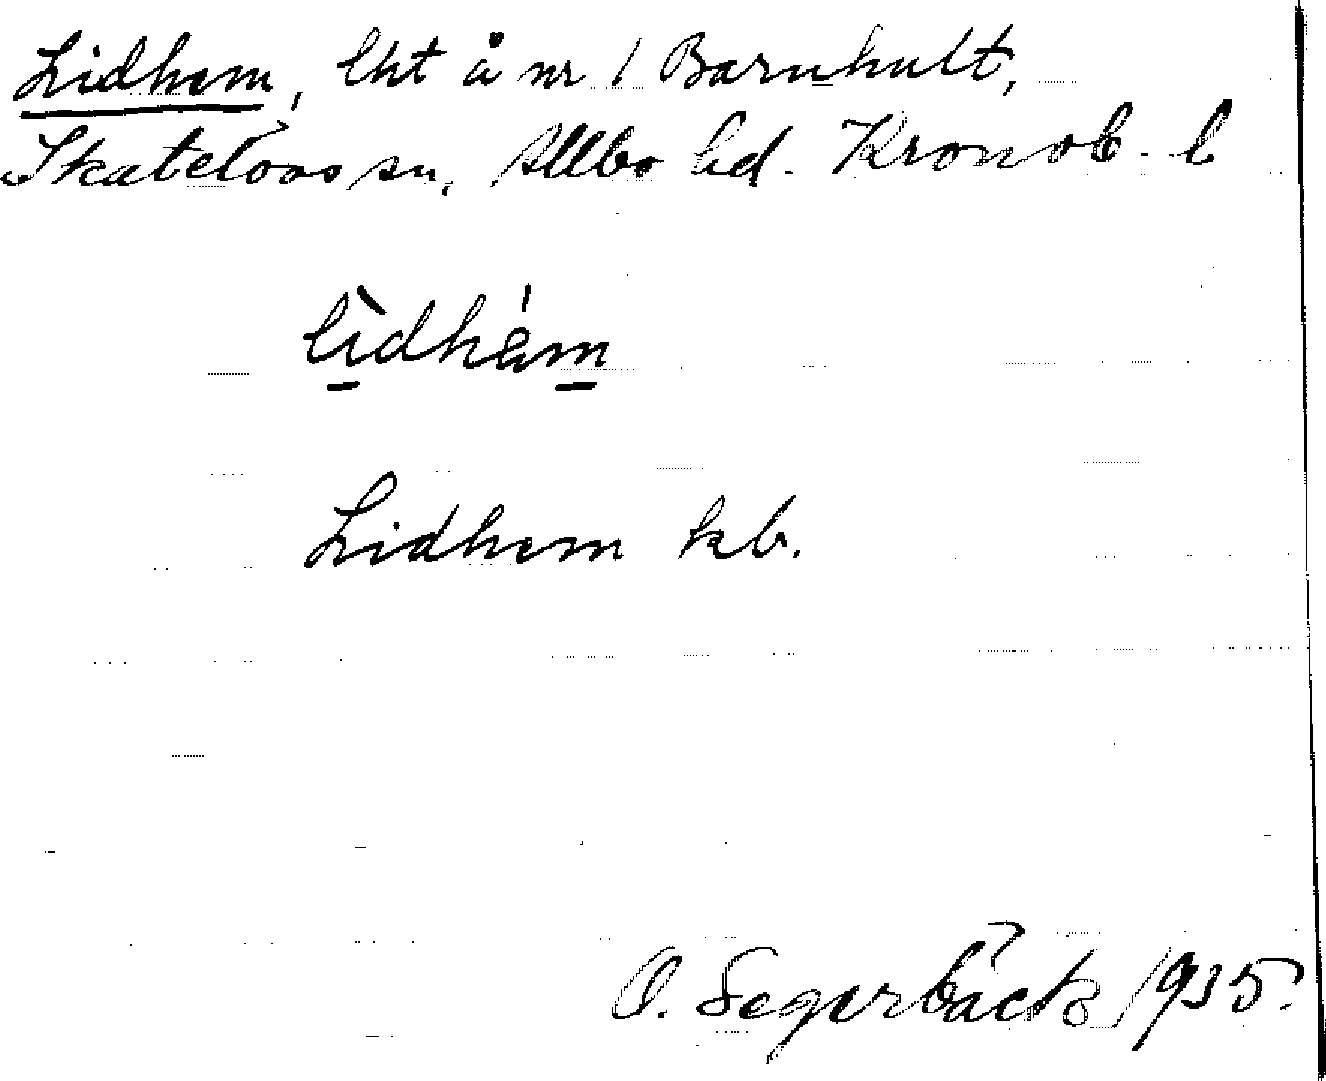 Lidhem, lht å nr 1 Barnhult,
Skatelövs sn, Allbo hd. Kronob. l
lìdhám
Lidhem kb.
O. Segerbäck 1935.